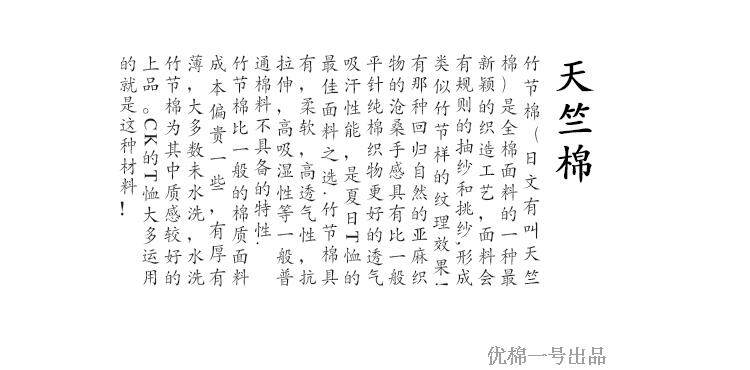 天竺棉
竹节棉（日文有叫天竺
棉）是全棉面料的一种最
新颖的织造工艺，面料会
有规则的抽纱和挑纱,形成
类似竹节样的纹理效果!
有那种回归自然的亚麻织
物的沧桑手感具有比一般
平针纯棉织物更好的透气
吸汗性能，是夏日T恤的
最佳面料之选.竹节棉具
有，柔软，高透气性，抗
拉伸，高吸湿性等一般普
通棉料不具备的特性.
竹节棉比一般的棉质面料
成本偏贵一些，有厚有
薄，大多数未水洗，水洗
竹节棉为其中质感较好的
上品。CK的T恤大多运用
的就是这种材料！
优棉一号出品